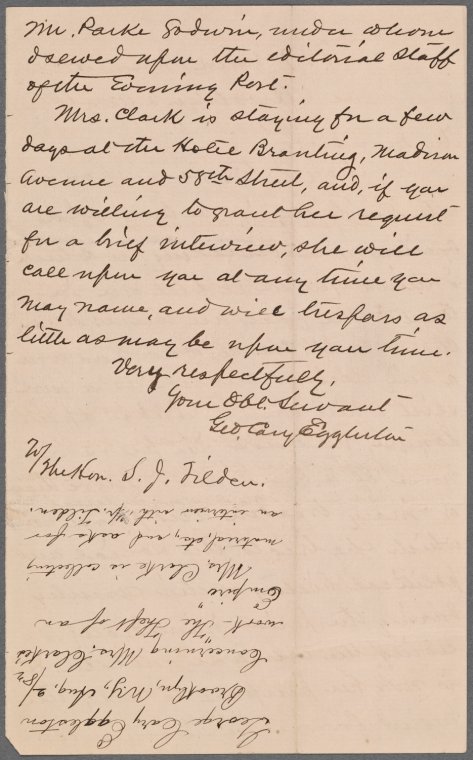 Mr. Parke Godwin, under whom
I served upon the editorial staff
of the Evening Post.
Mrs. Clark is staying for a few
days at the Hotel Branting, Madison
Avenue and 58th Street, and, if you
are willing to grant her request
for a brief interview, she will
call upon you at any time you
may name, and will trespass as
little as may be upon your time.
Very respectfully,
Your Obt. Servant
Geo. Cary Eggleston
To/
The Hon. S. J. Tilden.
George Cary Eggleston
Brooklyn, N.Y., Aug. 2/82
Concerning Mrs. Clarke's
work - "The Theft of an
Empire"
Mrs. Clarke is collecting
material, etc., and asks for
an interview with Mr. Tilden.